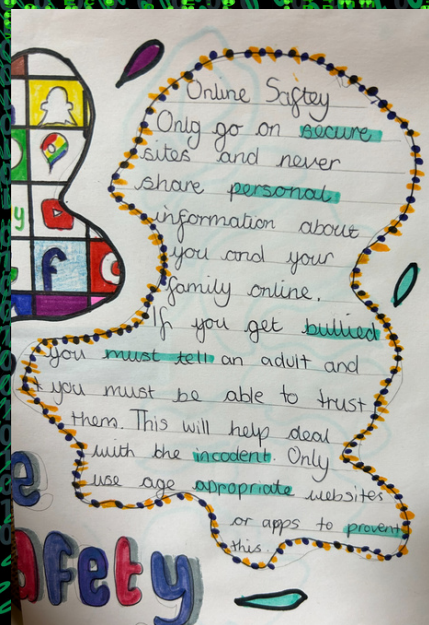 Online Saftey
Only go on secure
sites and never
share personal
information about
you and your
family online.
If you get bullied
you must tell an adult and
you must be able to trust
them. This will help deal
with the incodent. Only
use age appropriate websites
or apps to prevent
this.
y
f
e
afety